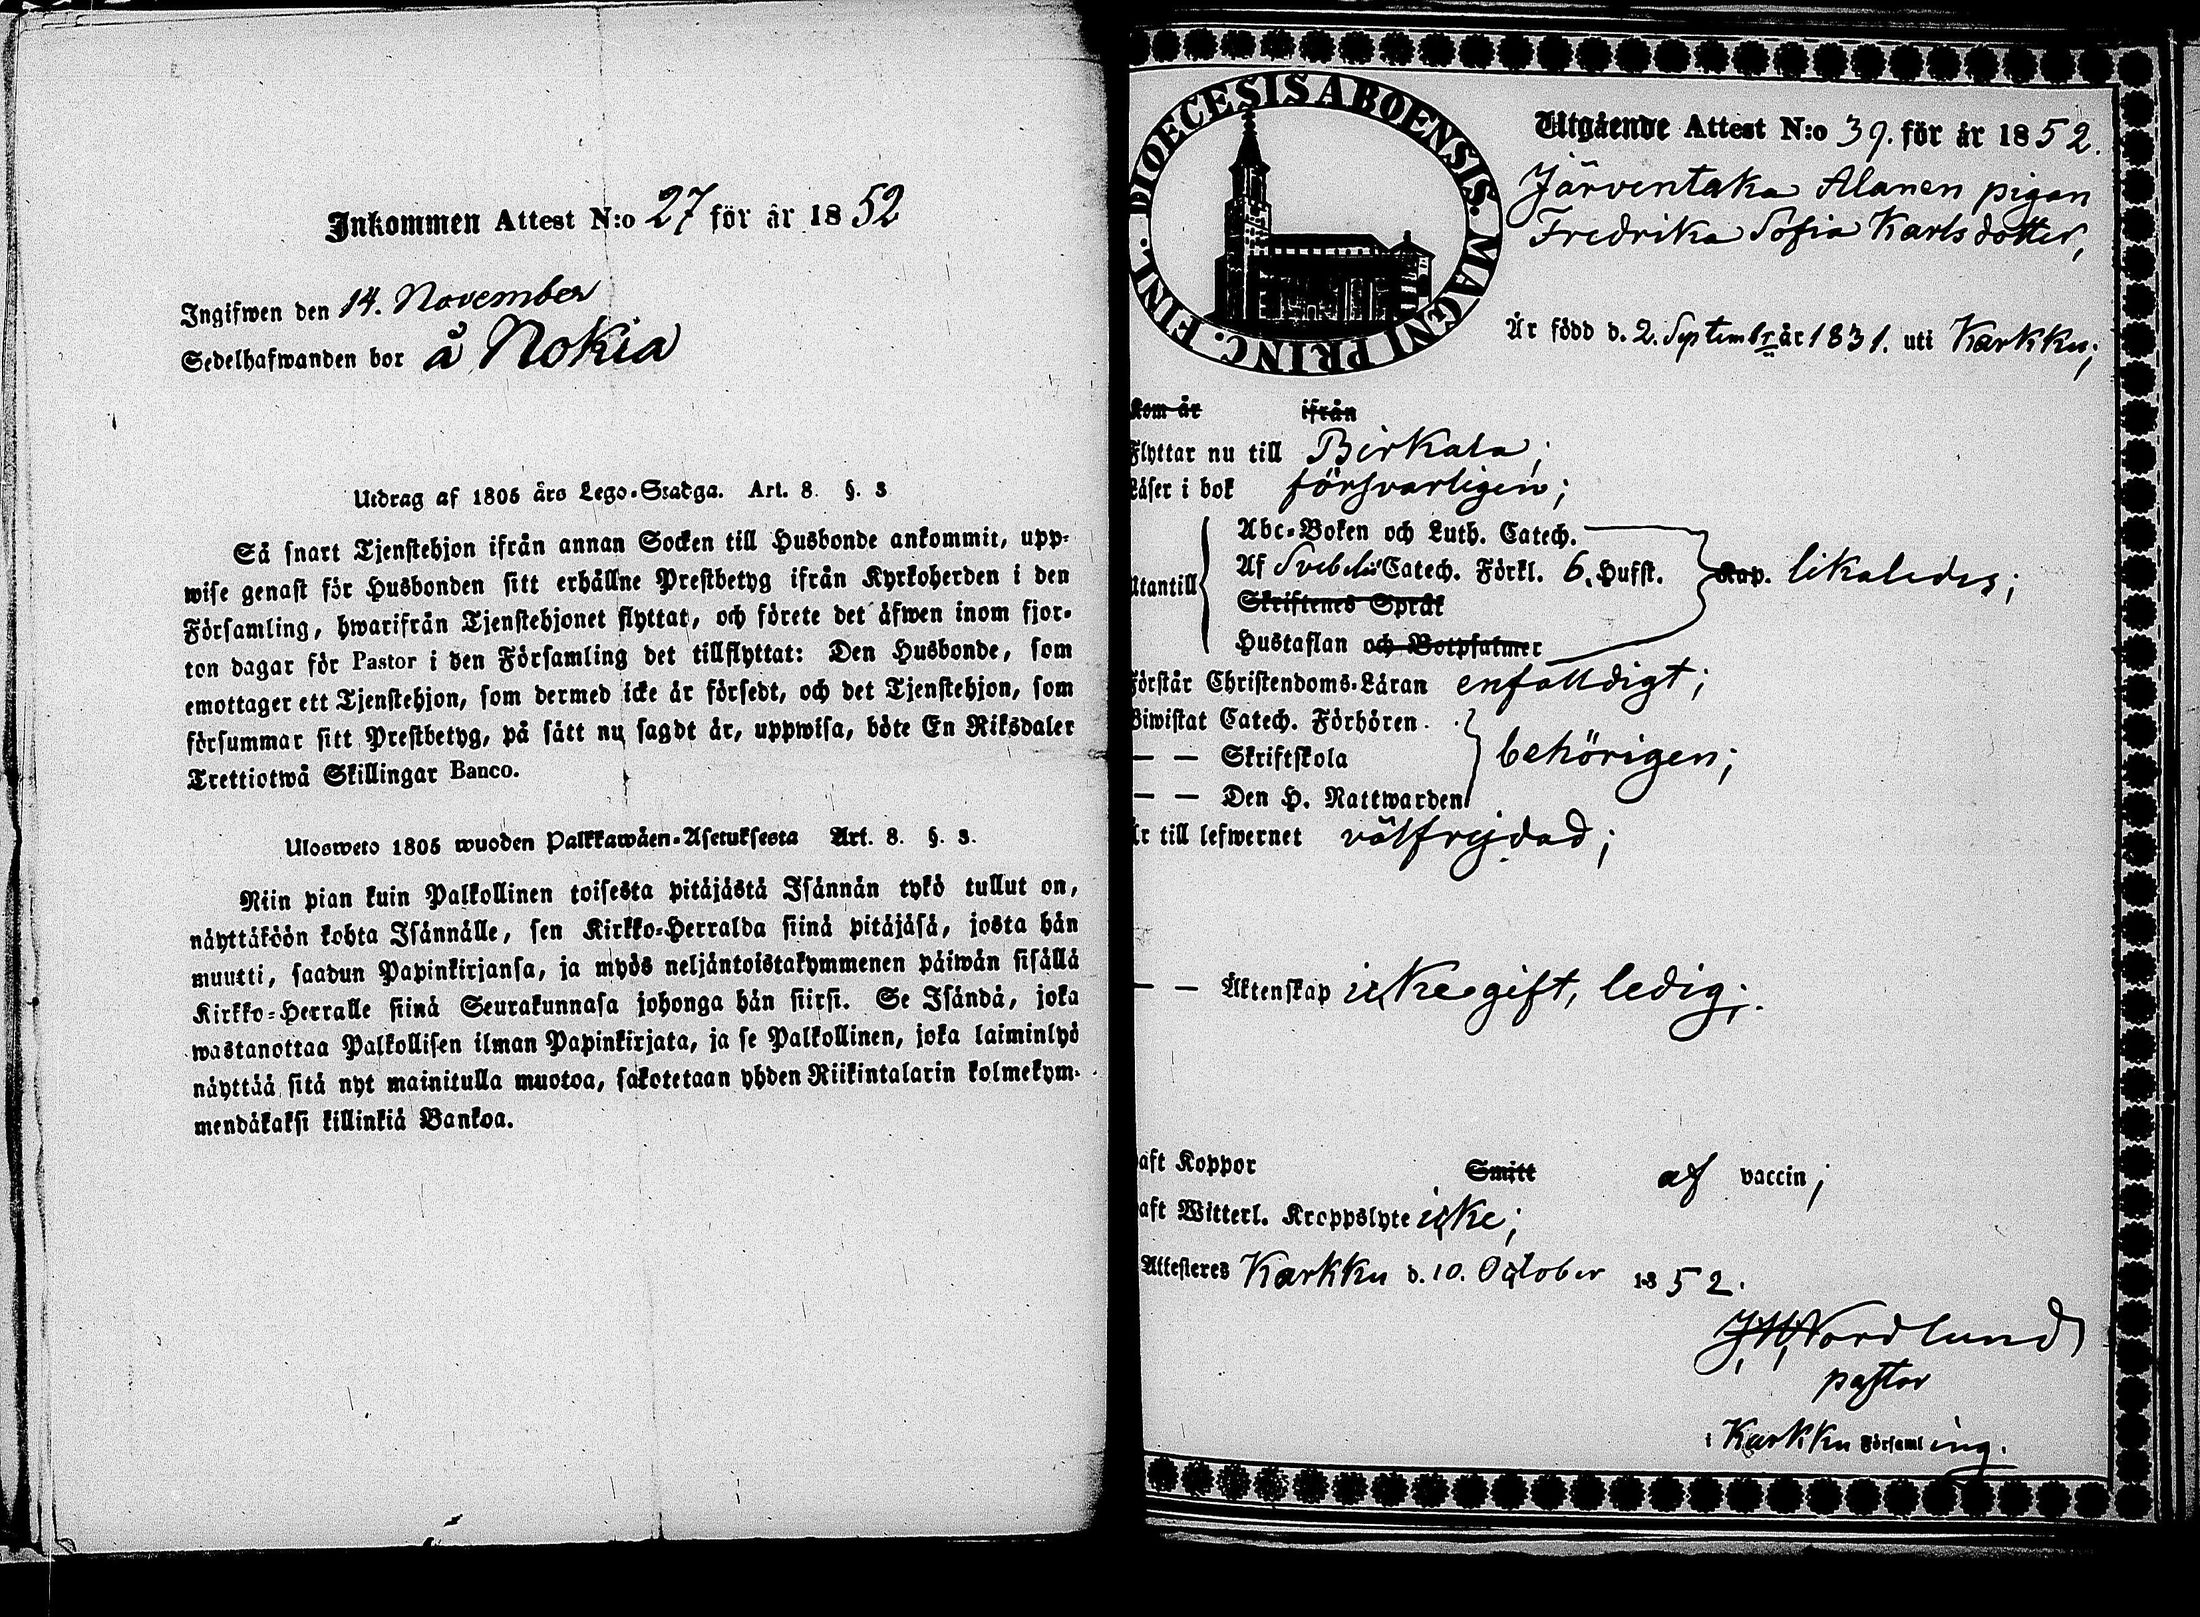 Inkommen Attest N:o 27 för år 1852
Ingifwen den 14. November
Sedelhafwanden bor å Nokia
Utdrag af 1805 års Lego-Stadga. Art. 8. §. 3
Så snart Tjenstehjon ifrån annan Socken till Husbonde ankommit, upp-
wise genast för Husbonden sitt erhållne Prestbetyg ifrån Kyrkoherden i den
Församling, hwarifrån Tjenstehjonet flyttat, och förete det äfwen inom fjor-
ton dagar för Pastor i den Församling det tillflyttat: Den Husbonde, som
emottager ett Tjenstehjon, som dermed icke är försedt, och det Tjenstehjon, som
försummar sitt Prestbetyg, på sätt nu sagdt är, uppwisa, böte En Riksdaler
Trettiotwå Skillingar Banco.
Ulosweto 1805 wuoden Palkkawäen-Asetuksesta Art. 8. §. 3.
Niin pian kuin Palkollinen toisesta pitäjästä Isännän tykö tullut on,
näyttäköön kohta Isännälle, sen Kirkko-Herralda siinä pitäjäsä, josta hän
muutti, saadun Papinkirjansa, ja myös neljäntoistakymmenen päiwän sisällä
Kirkko-Herralle siinä Seurakunnasa johonga hän siirsi. Se Isändä, joka
wastanottaa Palkollisen ilman Papinkirjata, ja se Palkollinen, joka laiminlyö
näyttää sitä nyt mainitulla muotoa, sakotetaan yhden Riikintalarin kolmekym-
mendäkaksi killinkiä Bankoa.
DIOECESIS ABOENSIS. MAGNI PRINC. FINL.
Utgående Attest N:o 39. för år 1852.
Järventaka Alanen pigan
Fredrika Sofia Karlsdotter,
Är född d. 2. Septembr år 1831. uti Karkku;
Kom år ifrån
Flyttar nu till Birkala;
Läser i bok försvarligen;
Utantill
Abc-Boken och Luth. Catech.
Af Svebelii Catech. Förkl. 6. Hufst. Kap. likaledes;
Skriftenes Språk
Hustaflan och Botpsalmer
Förstår Christendoms-Läran enfalldigt;
Biwistat Catech. Förhören.
— — Skriftskola behörigen;
— — Den H. Nattwarden
Är till lefwernet välfrejdad;
— — Äktenskap icke gift, ledig;
haft Koppor Smitt af vaccin;
haft Witterl. Kroppslyte icke;
Attesteres Karkku d. 10. October 1852.
J. H. Nordlund
pastor
i Karkku Församling.